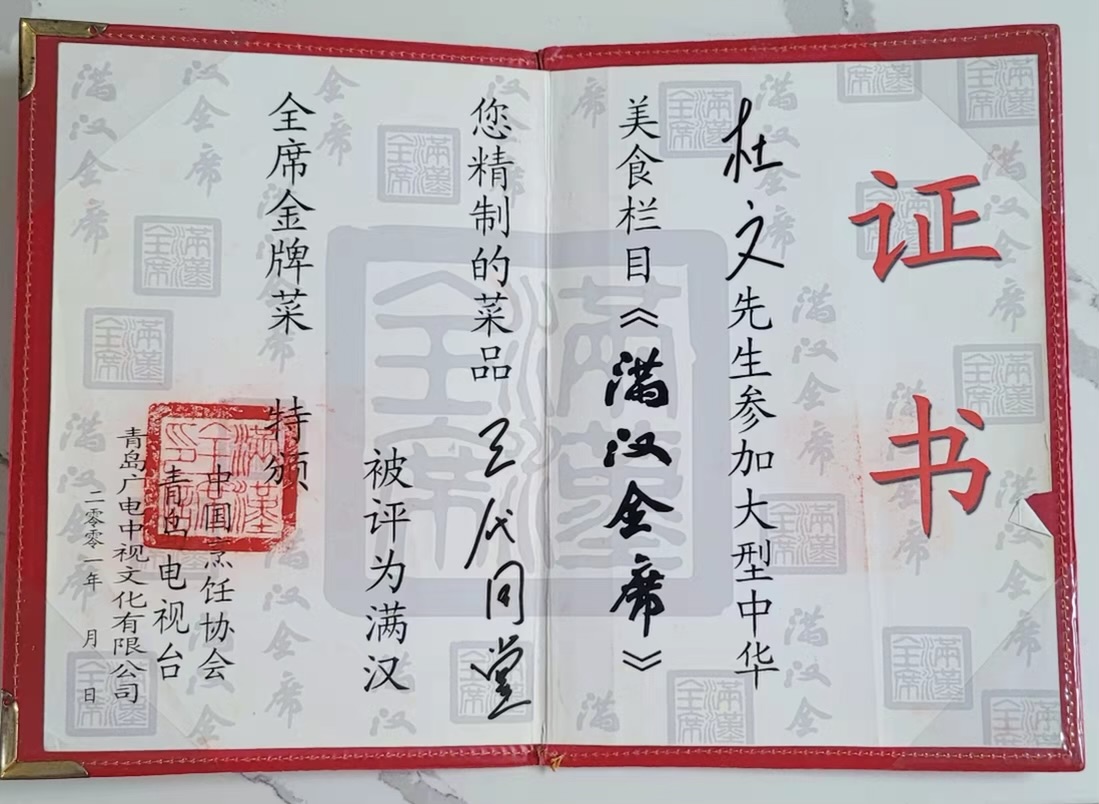 证书
杜文先生参加大型中华
美食栏目《满汉全席》
您精制的菜品 三代同堂
被评为满汉
全席金牌菜 特颁
中国烹饪协会
青岛电视台
青岛广电中视文化有限公司
二零零一年 月 日
滿漢全席
满汉全席